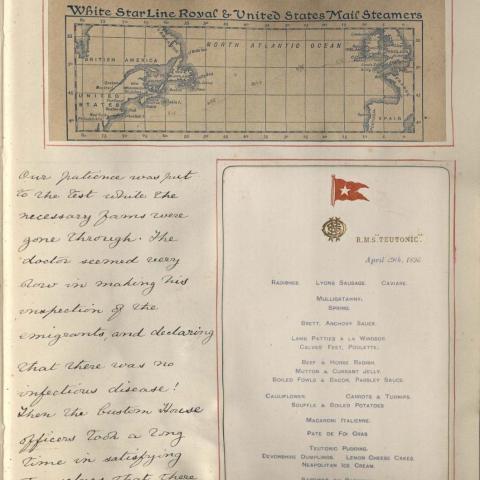 White Star Line Royal & United States Mail Steamers
NORTH ATLANTIC OCEAN
BRITISH AMERICA
UNITED
STATES
SPAIN
Our patience was put
to the test while the
necessary forms were
gone through. The
doctor seemed very
slow in making his
inspection of the
emigrants, and declaring
that there was no
infectious disease!
Then the Custom House
officers took a long
time in satisfying
that there
R.M.S. "TEUTONIC".
April 29th, 1896
RADISHES. LYONS SAUSAGE. CAVIARE.
MULLIGATAWNY.
SPRING.
BRETT, ANCHOVY SAUCE.
LAMB PATTIES A LA WINDSOR
CALVES FEET, POULETTE.
BEEF & HORSE RADISH.
MUTTON & CURRANT JELLY.
BOILED FOWLS & BACON, PARSLEY SAUCE.
CAULIFLOWER. CARROTS & TURNIPS.
SOUFFLE & BOILED POTATOES
MACARONI ITALIENNE.
PATE DE FOI GRAS
TEUTONIC PUDDING.
DEVONSHIRE DUMPLINGS. LEMON CHEESE CAKES.
NEAPOLITAN ICE CREAM.